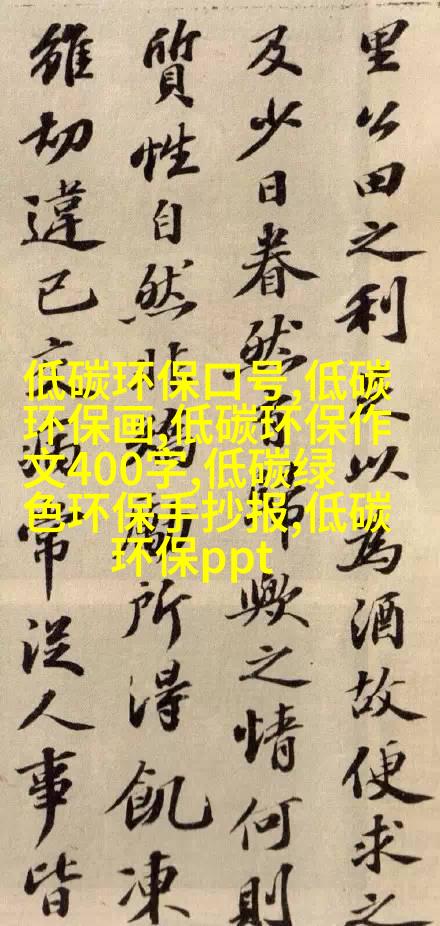 里公田之利足以為酒故便求之
及少日眷然有歸歟之情何則
質性自然非矯勵所得飢凍
雖切違已交病常從人事皆
低碳环保口号,低碳
环保画,低碳环保作
文400字,低碳绿
色环保手抄报,低碳
环保ppt